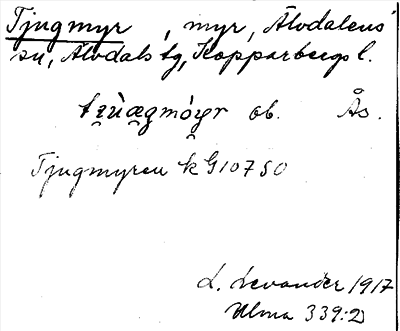 Tjugmyr, myr, Älvdalens
sn, Älvdals tg, Kopparbergs l.
ob. Ås.
Tjugmyren k G10750
L. Levander 1917
Ulma 339:D